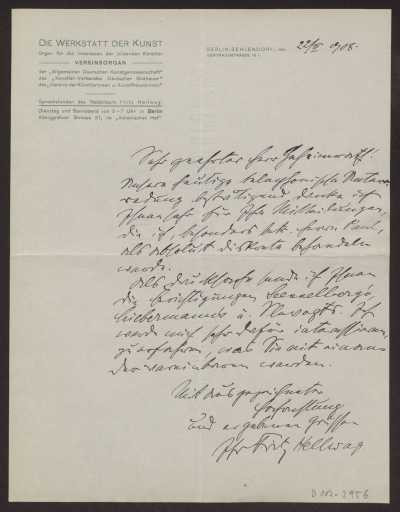 DIE WERKSTATT DER KUNST
Organ für die Interessen der bildenden Künstler
VEREINSORGAN
der „Allgemeinen Deutschen Kunstgenossenschaft"
des „Künstler-Verbandes Deutscher Bildhauer"
des „Vereins der Künstlerinnen u. Kunstfreundinnen"
Sprechstunden des Redakteurs Fritz Hellwag:
Dienstag und Sonnabend von 5–7 Uhr in Berlin
Königgrätzer Strasse 21, im „Askanischen Hof"
BERLIN-ZEHLENDORF, den 22/II 1908.
Sehr geehrter Herr Geheimrat!
Unsere heutige telephonische Unter-
redung bestätigend danke ich
Ihnen sehr für Ihre Mitteilungen,
die ich, besonders betr. Herrn Paul,
als absolut diskret behandeln
werde.
Als Drucksache sende ich Ihnen
die
Liebermanns u. Slevogts. Ich
werde mich sehr dafür interessieren,
zu erfahren, was Sie mit einan-
der vereinbaren werden.
Mit ausgezeichneter
Hochachtung
und ergebenen Grüssen
Ihr Fritz Hellwag